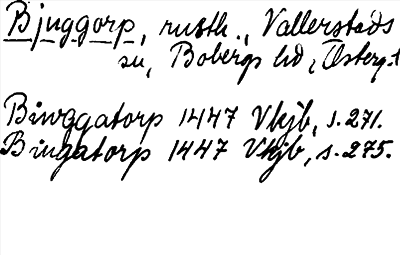 Bjuggorp, rusth., Vallerstads
su, Bobergs hd, Österg.
Biwggatorp 1447 Vkjb, s. 271.
Biugatorp 1447 Vkjb, s. 275.